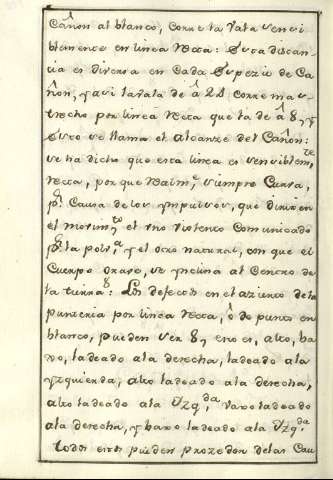 Cañon al blanco, corre la vala sensi
blemente en linea recta: Esta distan-
cia es diversa en cada Espezie de Ca
ñon, y asi la vala de â 24 corre mas
trecho por linea recta que la de â 8, y
esto se llama el alcanze del Cañon:
se ha dicho que esta linea es sensiblemte
recta, por que realmte siempre Curva,
pr Causa de los ympulsos, que dirixen
el movimto el uno violento Comunicado
pr la polva y el otro natural, con que el
Cuerpo grave, se ynclina al Centro de
la tierra: Los defectos en el aziento de la
punteria por linea recta, ô de punto en
blanco, pueden ser 8, y eno es, alto, ba
xo, ladeado ala derecha, ladeado ala
yzquierda, alto ladeado ala derecha,
alto ladeado ala Yzqda, vaxo ladeado
ala derecha, y baxo ladeado ala Yzqda
todos estos pueden prozeder delas Cau